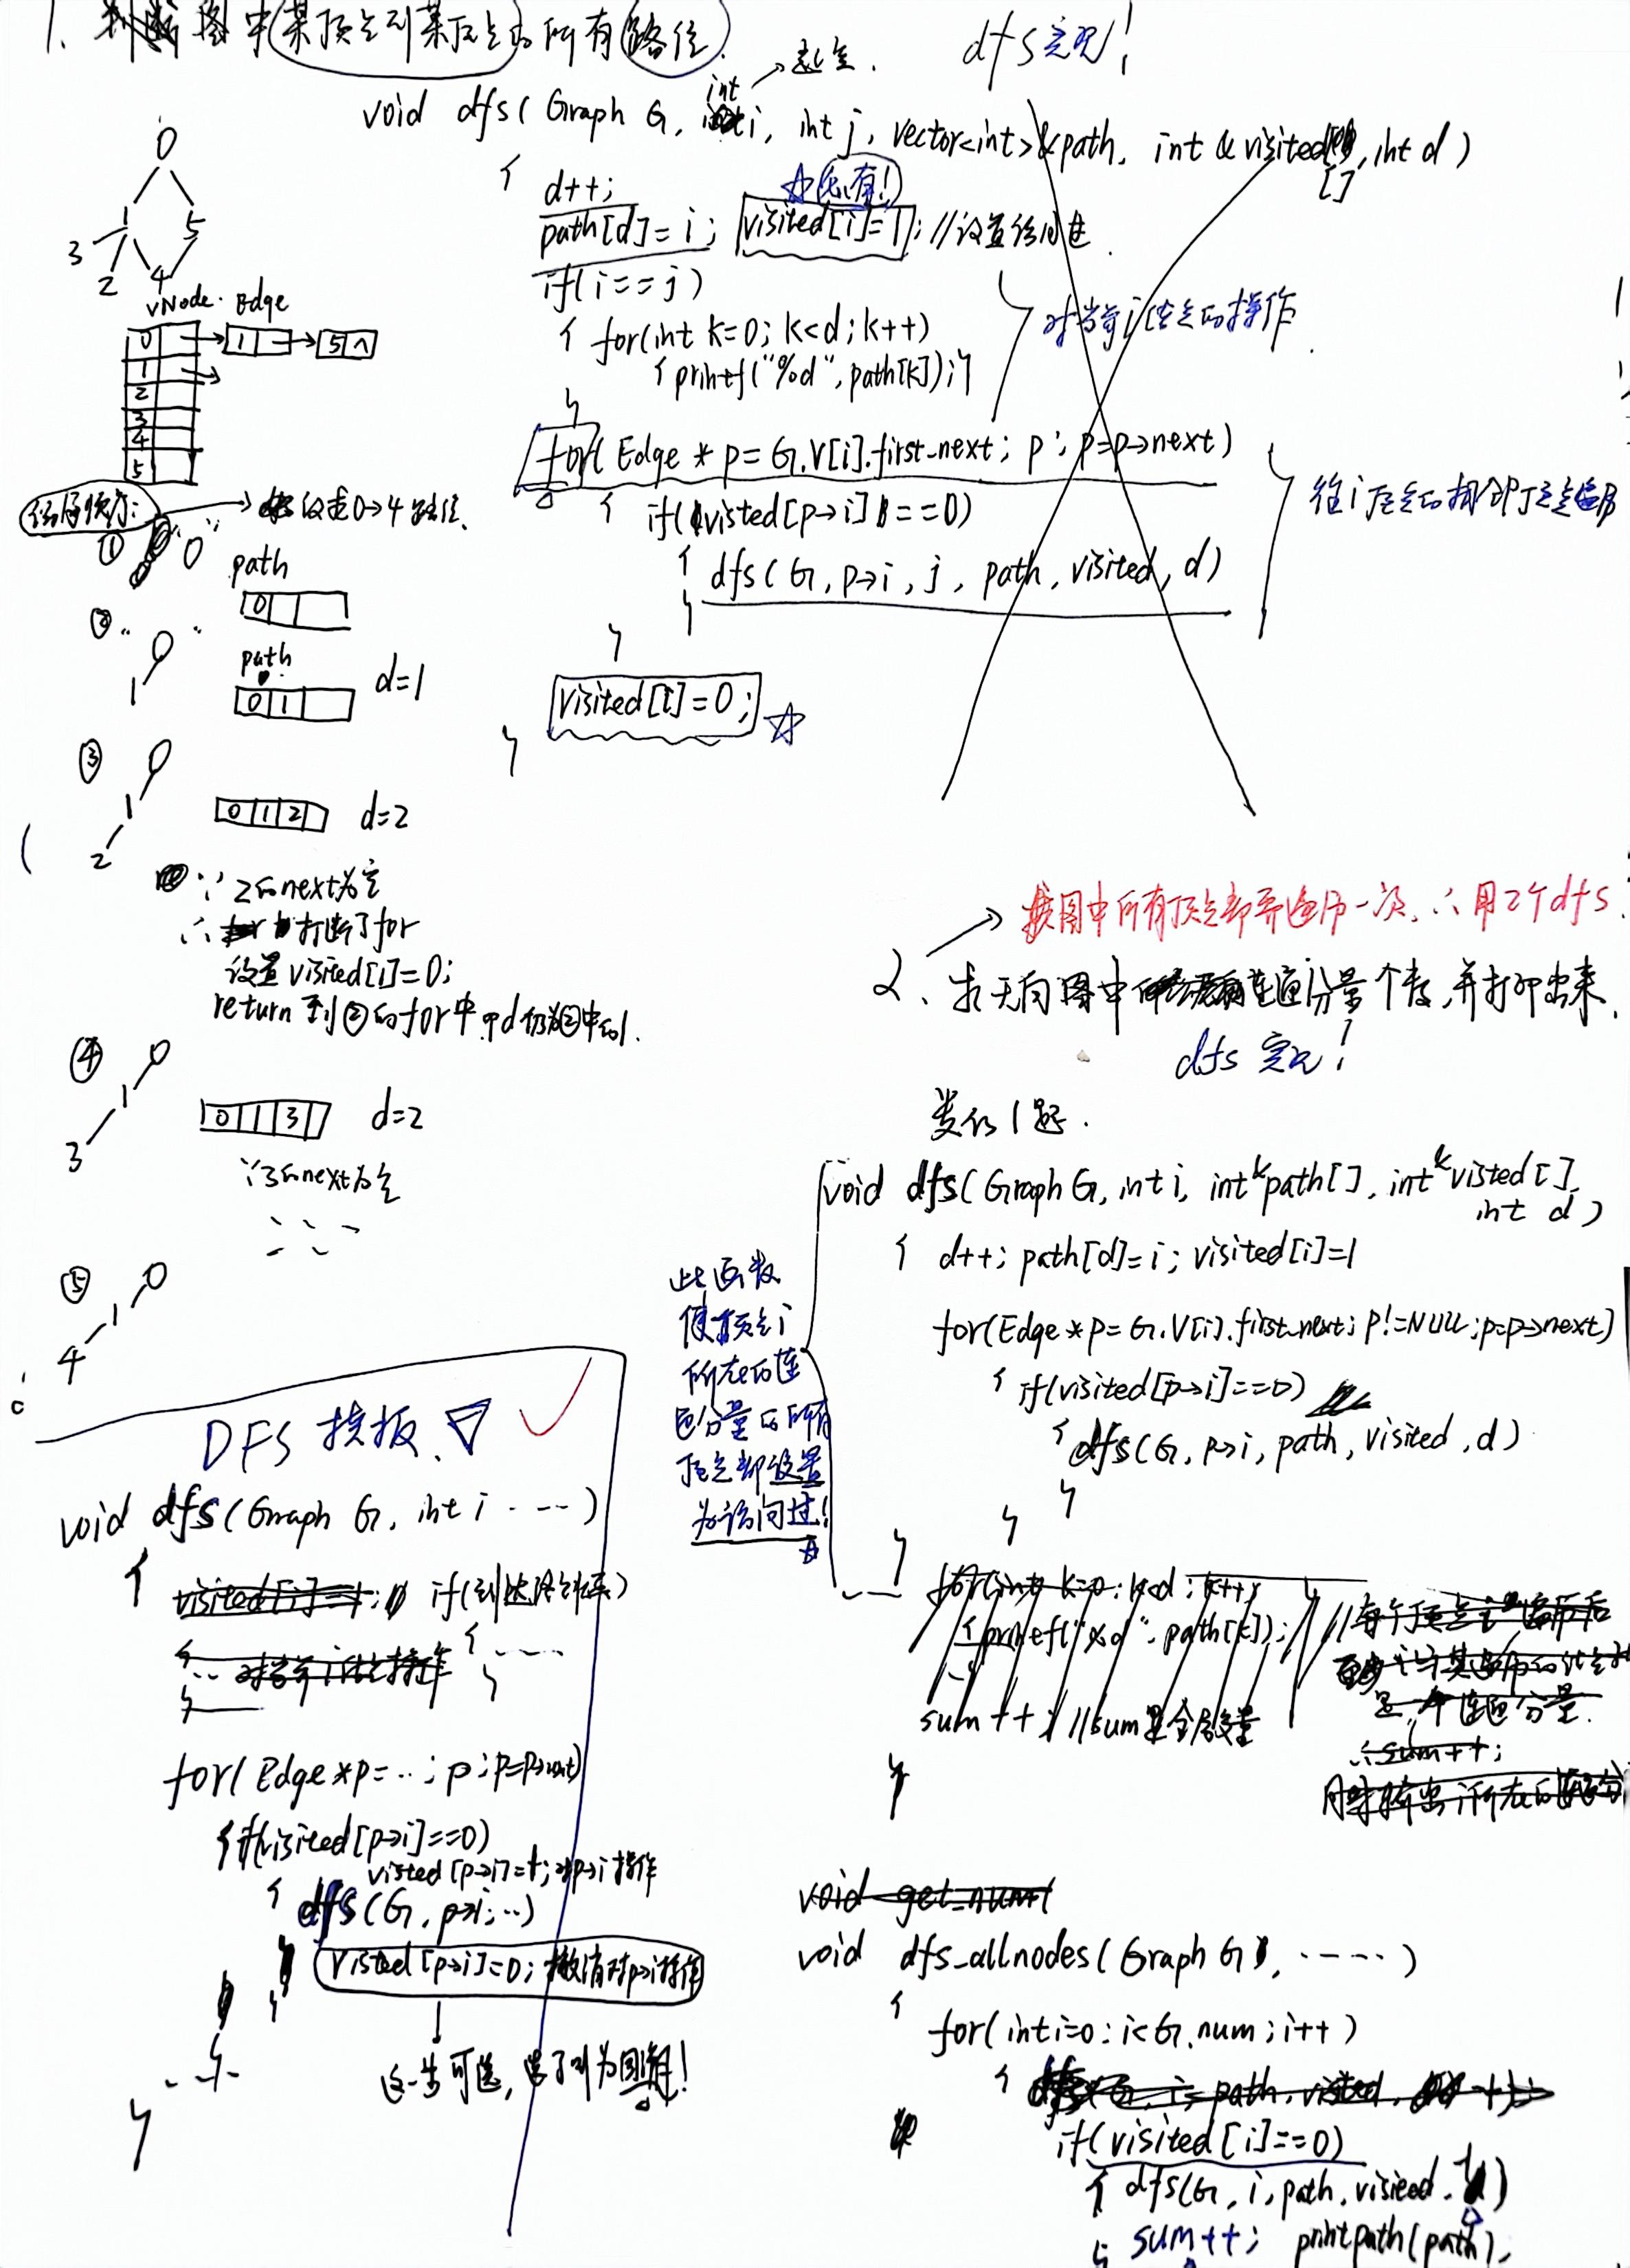 1. 判断图中某顶点到某顶点的所有路径.
dfs实现!
→起点.
void dfs( Graph G, int i, int j, vector<int>&path, int & visited[], int d )
{ d++;
☆(必有!)
path[d]= i; visited[i]=1; //设置访问过.
if(i==j)
{ for(int k=0; k<d; k++)
{ printf("%d", path[k]);}
}
对当前i结点的操作.
for( Edge * p= G.V[i].first_next; p; p=p→next)
{ if(visted[p→i]==0)
{ dfs( G, p→i, j, path, visited, d)
}
}
往i顶点的相邻顶点遍历
visited[i]=0; ☆
}
0
1 5
3 2 4
vNode. Edge
0 → 1 → 5 ∧
1 →
2
3
4
5
→ 仅求0→4路径.
① "0"
path
0
② " "
0
1
path
0 1
d=1
③ 0
1
2
0 1 2 d=2
∵ 2的next为空
∴ 打断了for
设置 visited[i]=0;
return 到②的for中
④ 0
1
3
0 1 3 d=2
∵3的next为空
⑤ 0
1
4
DFS 模板. ▽ ✓
void dfs( Graph G, int i ----)
{ visited[i]=1; if(到达终点)
{ ---- }
{ .. 对当前i结点操作
}
for( Edge *p=...; p; p=p→next)
{if(visited[p→i]==0)
visted[p→i]=1; 对p→i操作
{ dfs(G, p→i; ..)
visted[p→i]=0; 撤消对p→i操作
}
这一步可选, 选了叫为回溯!
}
→ 图中所有顶点都要遍历一次, ∴ 用2个dfs.
2、求无向图中连通分量个数,并打印出来.
dfs 实现!
类似1题.
void dfs( Graph G, int i, int&path[], int&visted[],
int d )
{ d++; path[d]=i; visited[i]=1
for(Edge *p= G.V[i].first_next; p!=NULL; p=p→next)
{ if(visited[p→i]==0)
{ dfs(G, p→i, path, visited, d)
}
}
}
此函数
使顶点i
所在的连
通分量的所有
顶点都设置
为访问过!
☆
for(int k=0; k<d; k++)
{printf("%d", path[k]);
}
sum++; //sum是全局变量
//每个顶点i遍历后
是一个连通分量.
∴sum++;
}
void get_num(
void dfs_allnodes( Graph G, -----)
{ for( int i=0; i<G.num; i++ )
{ dfs( G, i, path, visited,
if( visited [i]==0)
{ dfs(G, i, path, visited,
sum++; printpath(path),